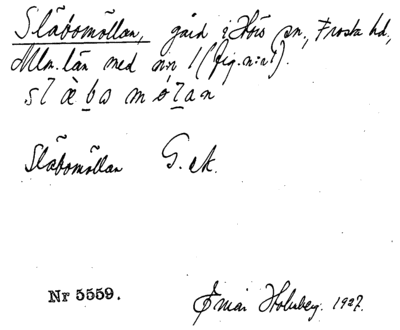 Slābomöllan, gård i Hörs sn, Frosta hd,
Mlm. län med n:r 1 (jfg. n:r 1).
slàbamö́lan
Slābomöllan G. ek.
Nr 5559.
Holmberg. 1927.